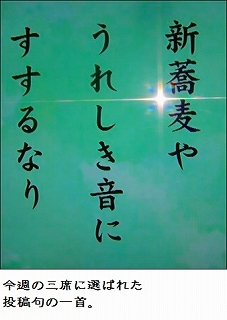 新蕎麦や
うれしき音に
すするなり
今週の三席に選ばれた
投稿句の一首。